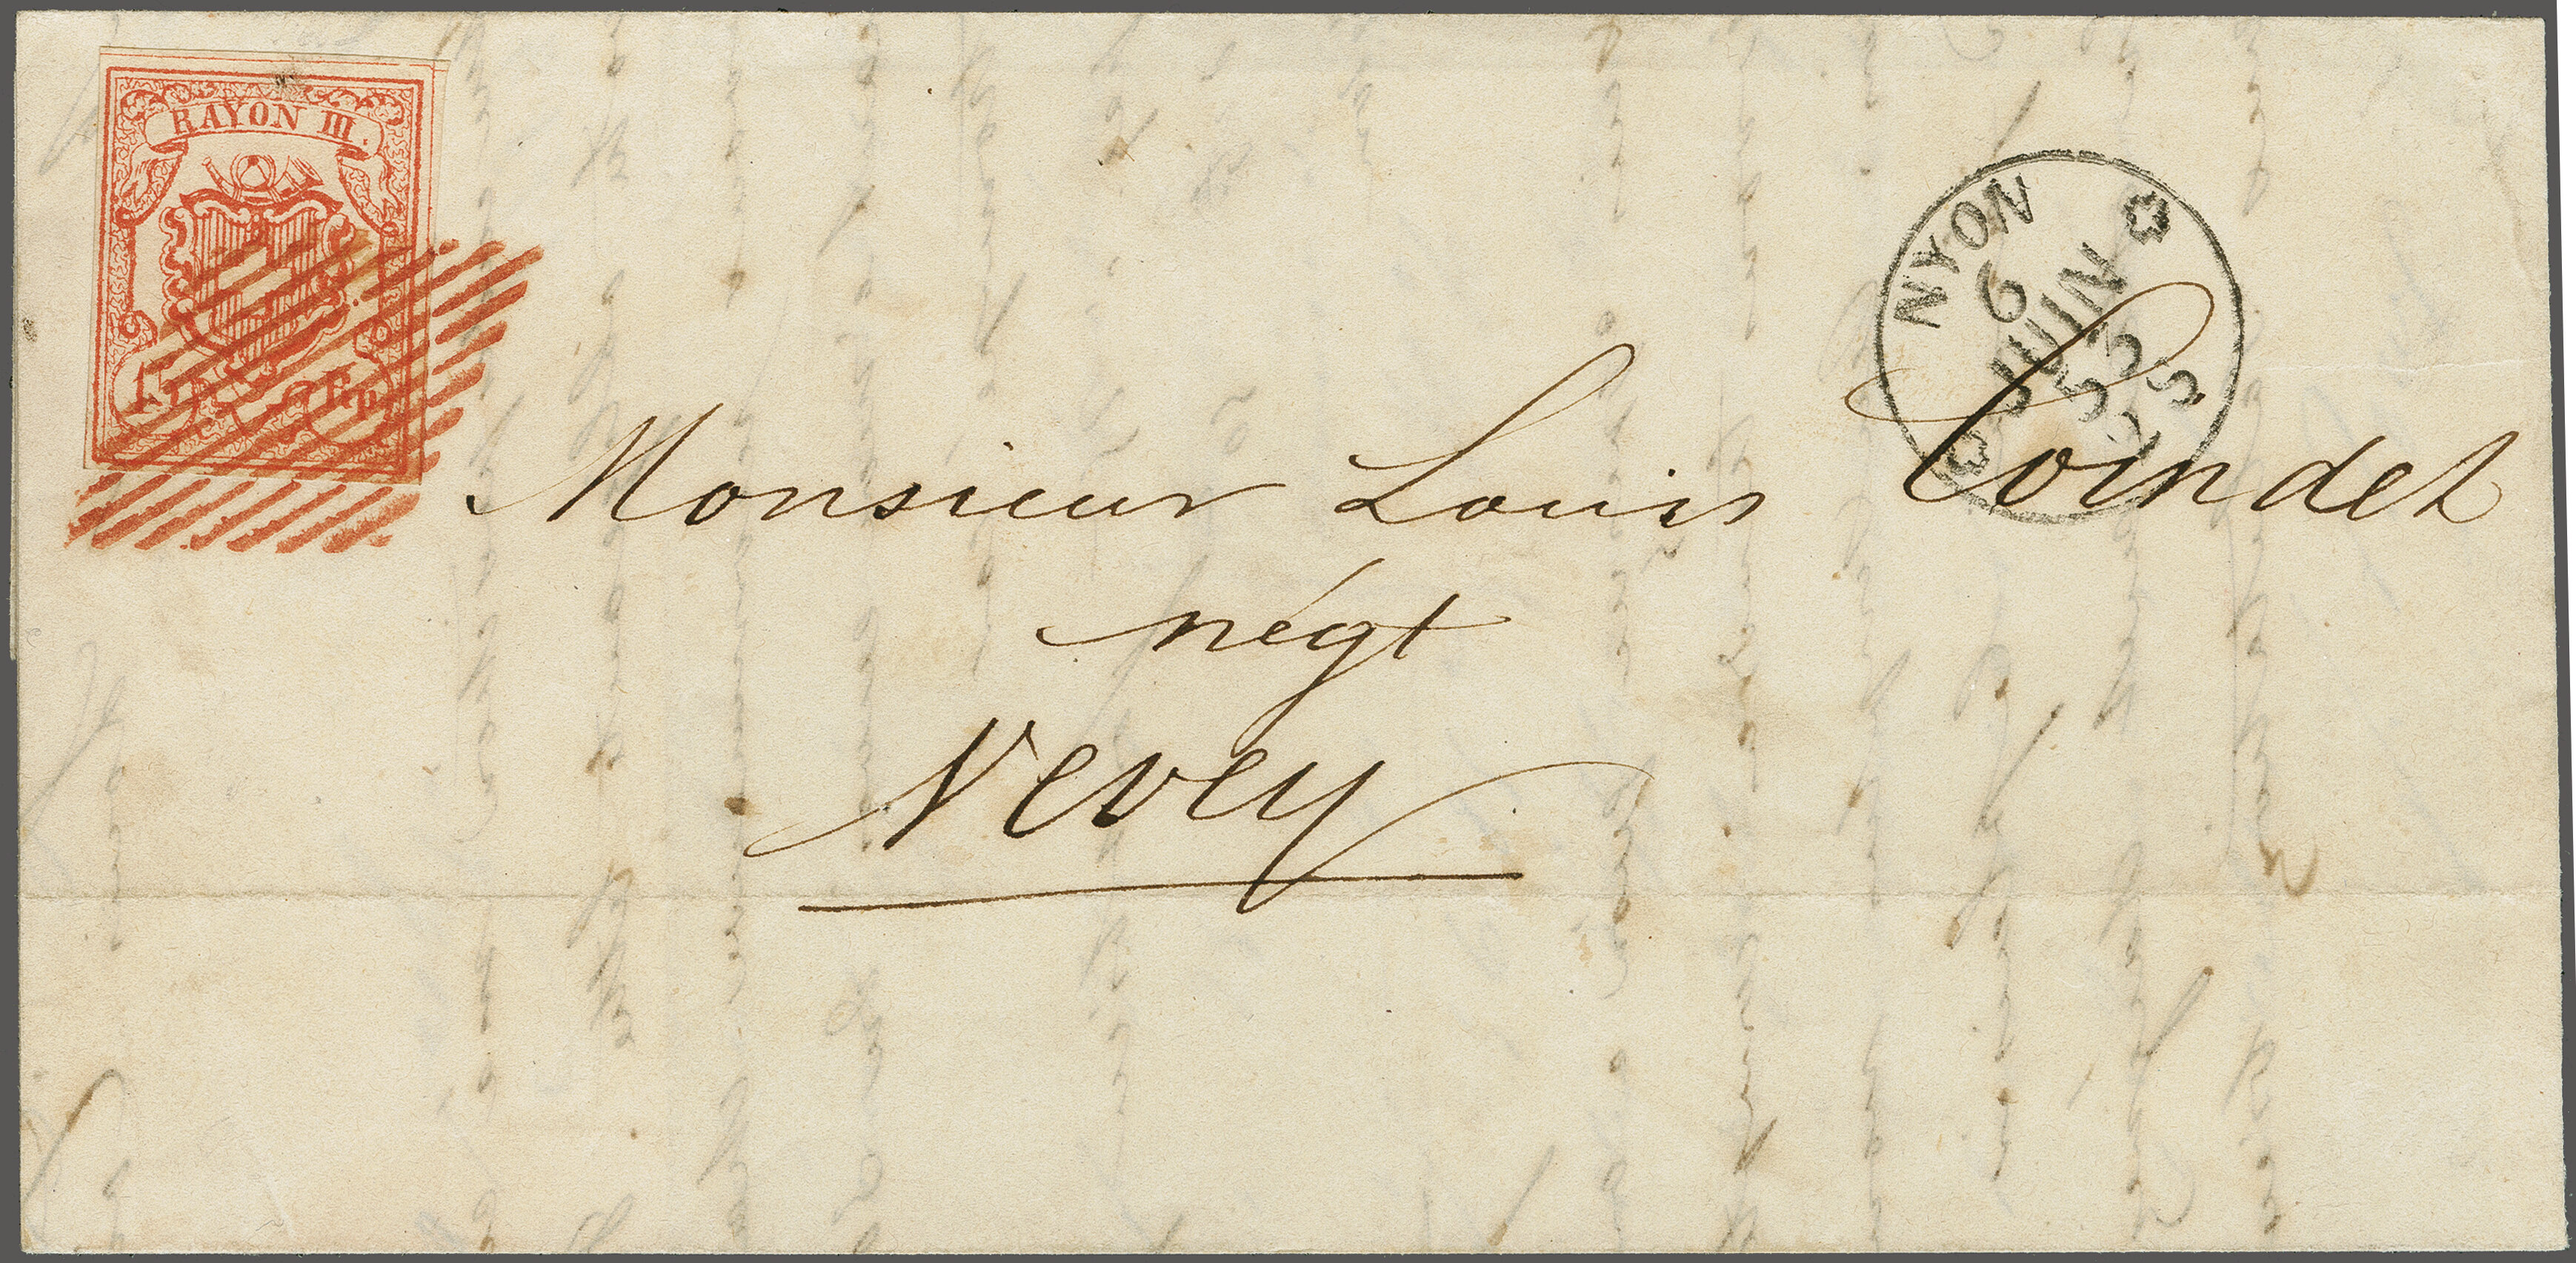 RAYON III.
15 Rp
NYON
6
JUIN
53
2S
Monsieur Louis Coindet
négt
Vevey